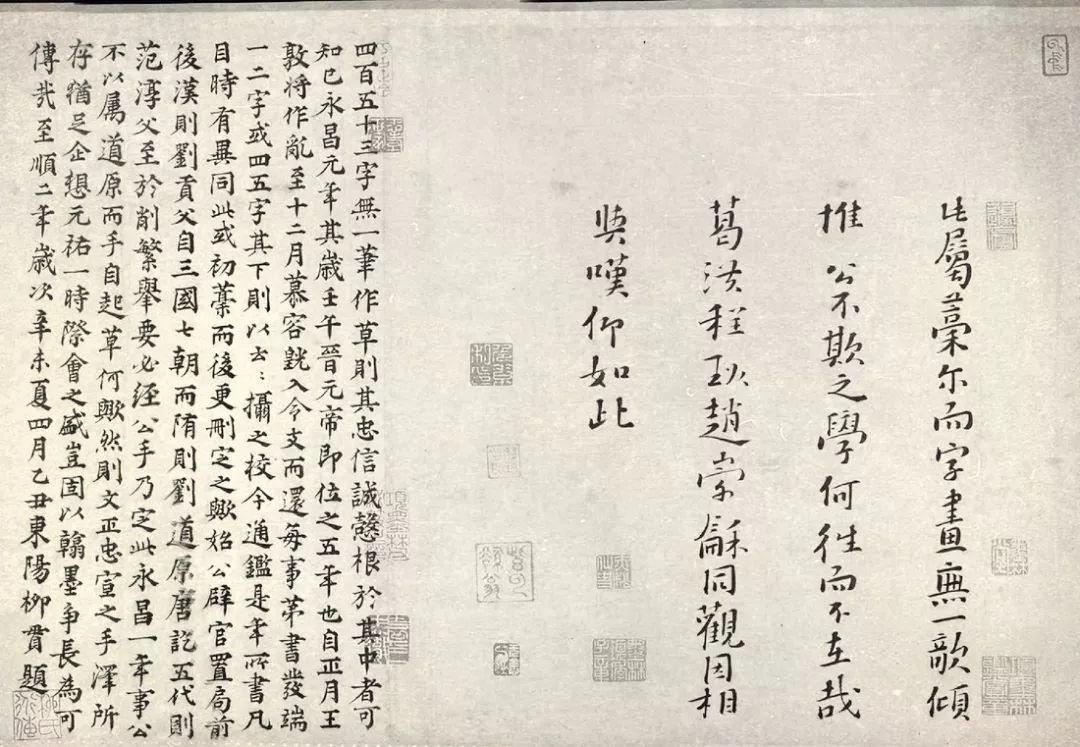 此屬藁尔而字畫無一欹傾
推公不欺之學何往而不在哉
葛洪程珌趙崇龢同觀因相
與嘆仰如此
四百五十三字無一筆作草則其忠信誠愨根於其中者可
知已永昌元年其歲壬午晉元帝即位之五年也自正月王
敦将作亂至十二月慕容皝入令支而還每事第書發端
一二字或四五字其下則以云云攝之校今通鑑是年所書凡
目時有異同此或初藁而後更刪定之歟始公辟官置局前
後漢則劉貢父自三國七朝而隋則劉道原唐訖五代則
范淳父至於削繁舉要必經公手乃定此永昌一年事公
不以属道原而手自起草何歟然則文正忠宣之手澤所
存猶足企想元祐一時際會之盛豈固以翰墨爭長為可
傳哉至順二年歲次辛未夏四月乙丑東陽柳貫題